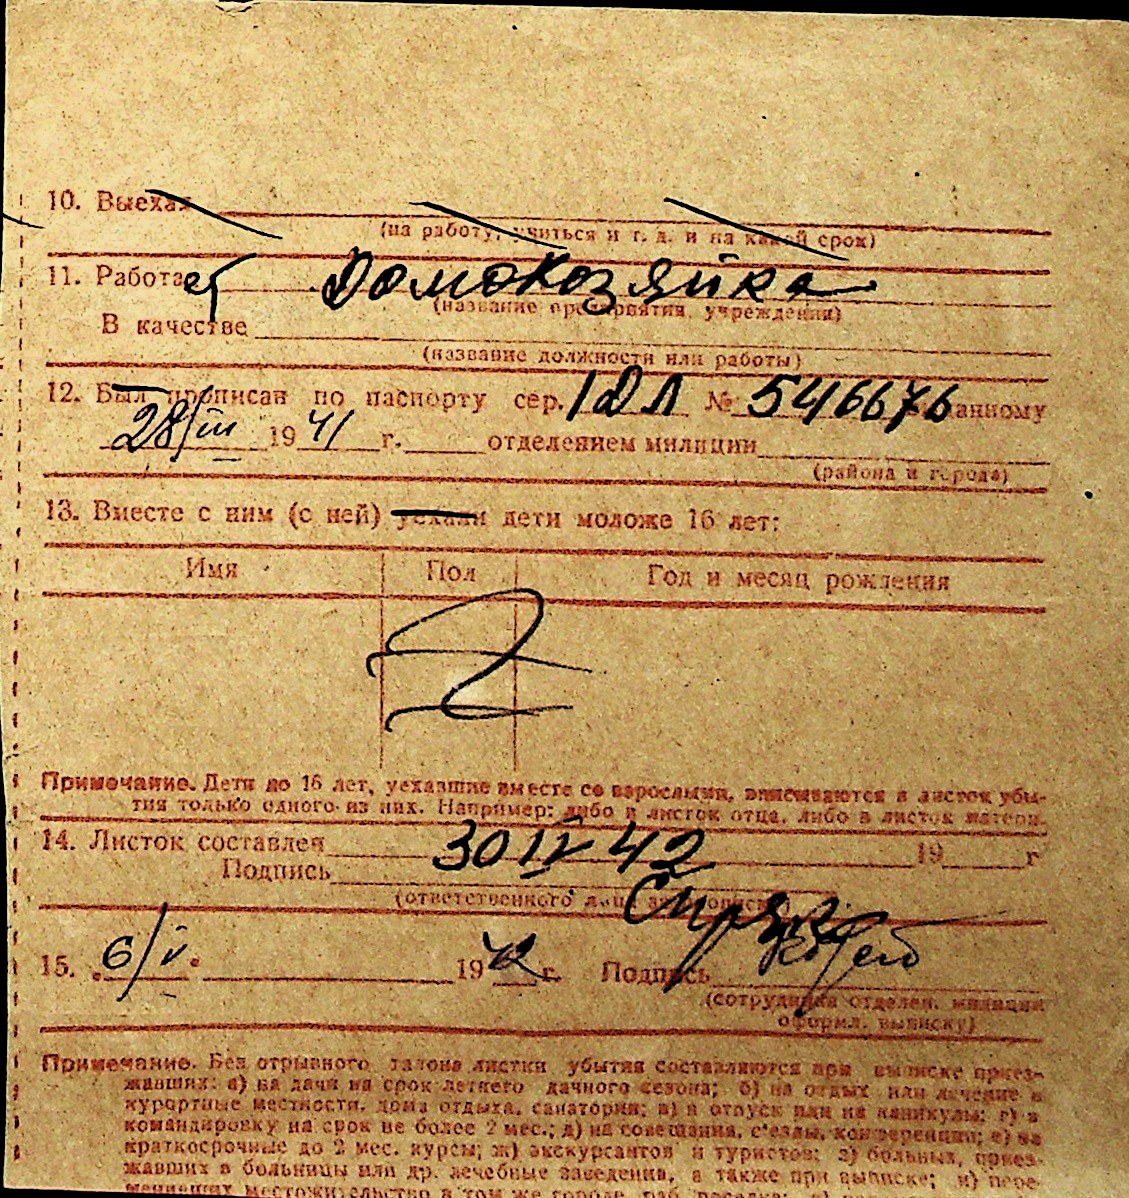 10. Выехал
(на работу, учиться и т. д. и на какой срок)
11. Работает Домохозяйка
(название предприятия, учреждения)
В качестве
(название должности или работы)
12. Был прописан по паспорту сер. IДЛ № 546676 данному
28/III 1941 г. отделением милиции
(района и города)
13. Вместе с ним (с ней) уехали дети моложе 16 лет:
Имя Пол Год и месяц рождения
Примечание. Дети до 16 лет, уехавшие вместе со взрослыми, вписываются в листок убы-
тия только одного из них. Например: либо в листок отца, либо в листок матери.
14. Листок составлен 30 IV 42 19 г
Подпись
(ответственного лица за прописку)
15. 6/V 1942 г. Подпись
(сотрудника отделен. милиции
оформл. выписку)
Примечание. Без отрывного талона листки убытия составляются при выписке приез-
жавших: а) на дачи на срок летнего дачного сезона; б) на отдых или лечение в
курортные местности, дома отдыха, санатории; в) в отпуск или на каникулы; г) в
командировку на срок не более 2 мес.; д) на совещания, съезды, конференции; е) на
краткосрочные до 2 мес. курсы; ж) экскурсантов и туристов; з) больных, приез-
жавших в больницы или др. лечебные заведения, а также при выписке; и) пере-
менивших местожительство в том же городе, раб. поселке;